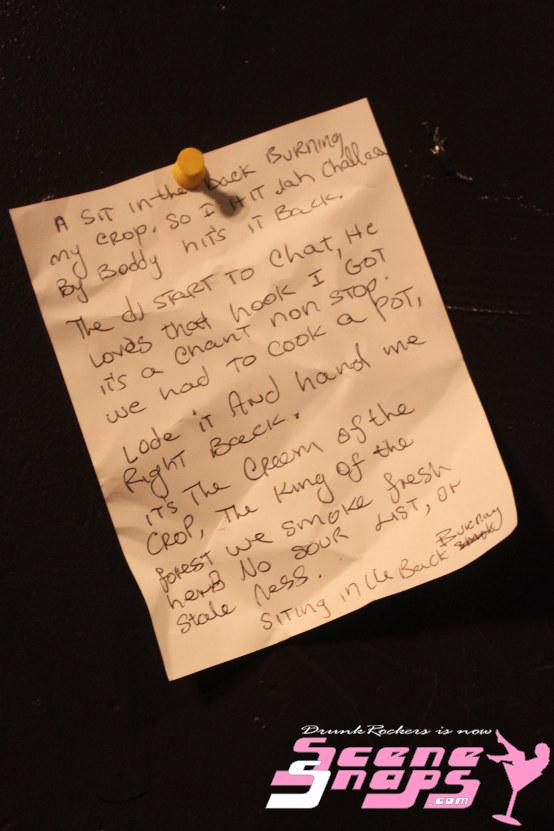 A SIT in the back BURNING
my CROP. So I HIT Jah Challaa
By Boddy hits it Back.
The dj START TO Chat, He
Loves that hook I GOT
it's a chant non STOP.
we had To Cook a POT,
Lode it And hand me
Right Back.
it's The Creem of the
CROP, The King of the
forest we smoke fresh
herb NO SOUR LIST, or
Stale ness.
SITing in Back Burning
DrunkRockers is now
SceneSnaps.com